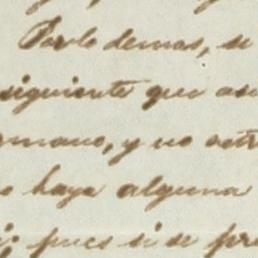 Por lo demas, se
siguiente que
mano, y no
haya alguna
pues si se